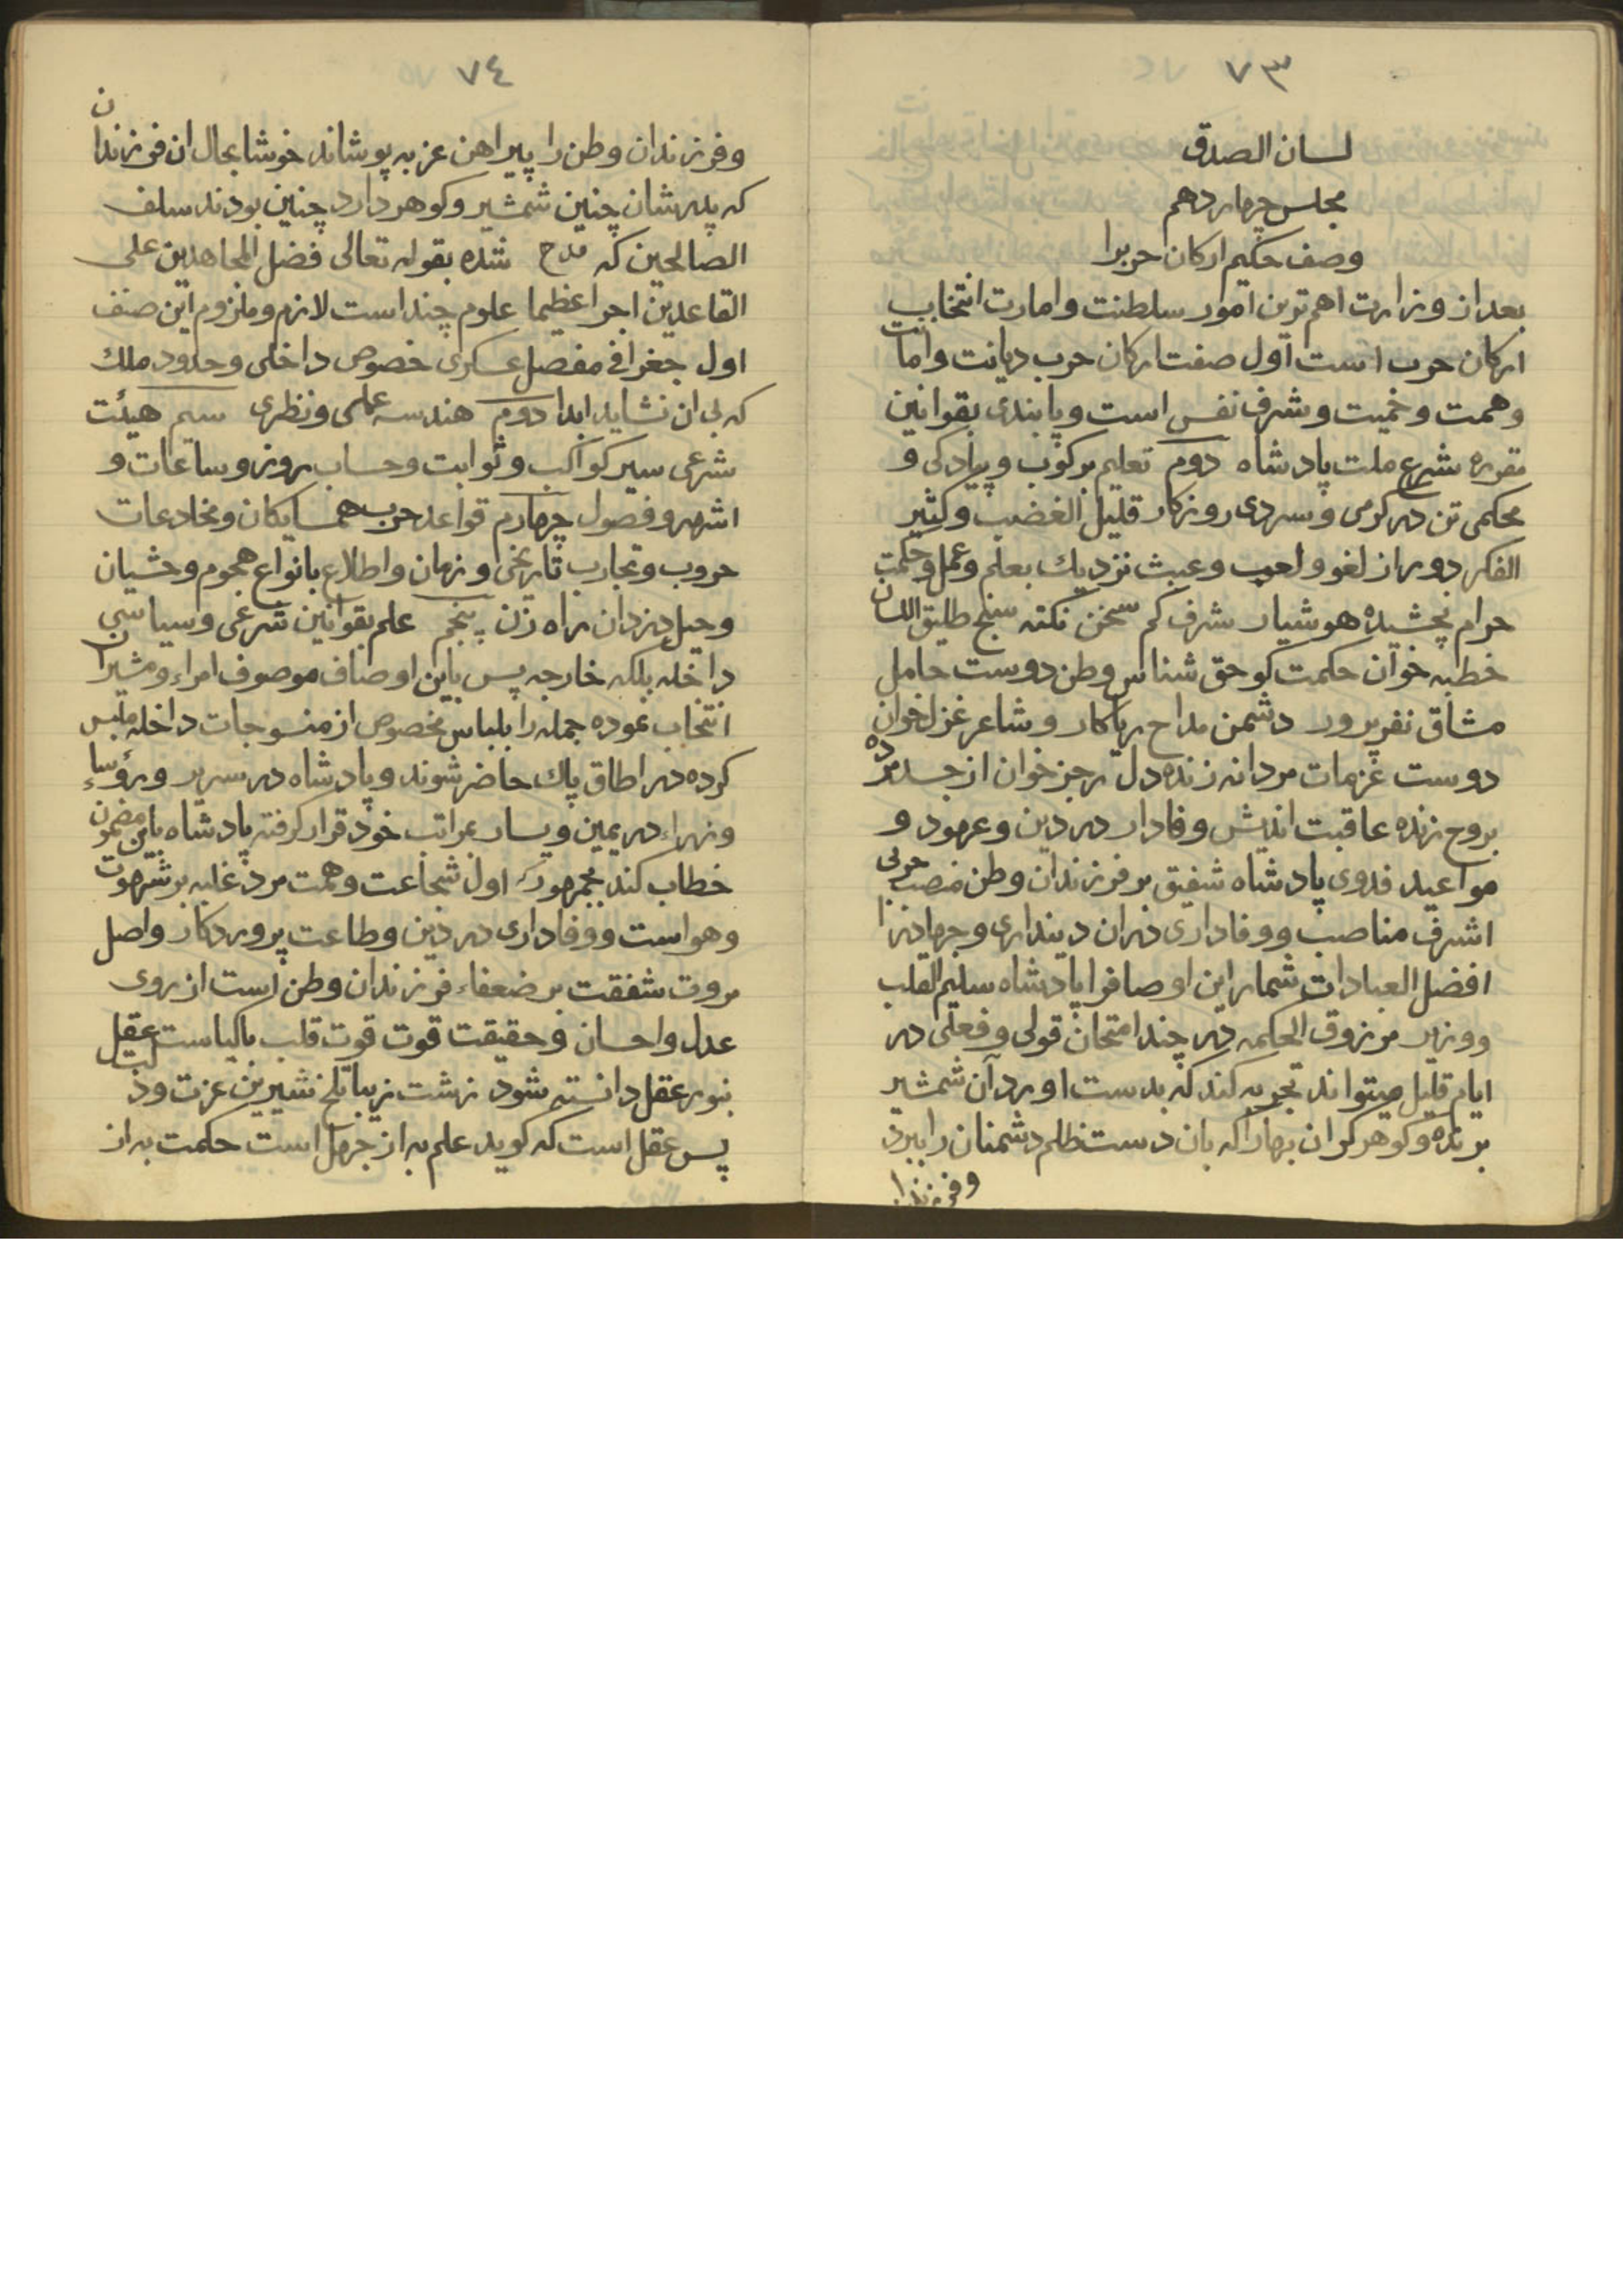 ٧٣
لسان الصدق
مجلس چهاردهم
وصف حکیم ارکان حربرا
بعد از وزارت اهم ترین امور سلطنت وامارت انتخاب
ارکان حرب است اول صفت ارکان حرب دیانت وامانت
وهمت وحمیت وشرف نفس است وپابندی بقوانین
مقرره شرع ملت پادشاه دوم تعلیم برکوب وپیادکی و
محکمی تن در کرمی وسردی روزکار قلیل الغضب وکثیر
الفکر دور از لغو ولعب وعبث نزدیك بعلم وعمل وحکمت
حرام نچشیده هوشیار شرف کم سخن نکته سنج طلیق اللسان
خطبه خوان حکمت کو حق شناس وطن دوست حامل
مشاق نفرپرور دشمن مداح ریاکار وشاعر غزلخوان
دوست عزمات مردانه زنده دل رجز خوان از جسد مرده
بروح زنده عاقبت اندیش وفادار در دین وعهود و
مواعید فدوی پادشاه شفیق بر فرزندان وطن منصب حربی
اشرف مناصب ووفاداری دران دینداری وجهاد را
افضل العبادات شمارد این اوصافرا پادشاه سلیم القلب
ووزیر مرزوق الحکمه در چند امتحان قولی وفعلی در
ایام قلیل میتواند تجربه کند که بدست اورد آن شمشیر
برنده وکوهر کران بهارا که بان دست ظلم دشمنان را ببرد
وفرزندا
٧٤
وفرزندان وطن را پیراهن عز به پوشاند خوشا بحال ان فرزندان
که پدرشان چنین شمشیر وکوهر دارد چنین بودند سلف
الصالحین که مدح شده بقوله تعالی فضل المجاهدین علی
القاعدین اجرا عظیما علوم چند است لازم وملزوم این صنف
اول جغرافی مفصل عسکری خصوص داخلی وحدود ملك
که بی ان نشاید ابدا دوم هندسه عملی ونظری سیم هیئت
شرعی سیر کواکب وثوابت وحساب روز وساعات و
اشهر وفصول چهارم قواعد حرب همسایکان ومخادعات
حروب وتجارب تاریخی وزمان واطلاع بانواع هجوم وحشیان
وحیل دزدان راه زن پنجم علم بقوانین شرعی وسیاسی
داخله بلکه خارجه پس باین اوصاف موصوف امراء ومشیران
انتخاب نموده جمله را بلباس مخصوص از منسوجات داخله ملبس
کرده در اطاق پاك حاضر شوند وپادشاه در سریر ورؤساء
وزراء در یمین ویسار بمراتب خود قرار کرفته پادشاه باین مضمون
خطاب کند بجمهور اول شجاعت وهمت مرد غلبه بر شهوت
وهواست ووفاداری در دین وطاعت پروردکار واصل
مروت شفقت بر ضعفاء فرزندان وطن است از روی
عدل واحسان وحقیقت قوت قوت قلب باکیاست عقل
بنور عقل دانسته شود زشت زیبا تلخ شیرین عزت وذلت
پس عقل است که کوید علم به از جهل است حکمت به از